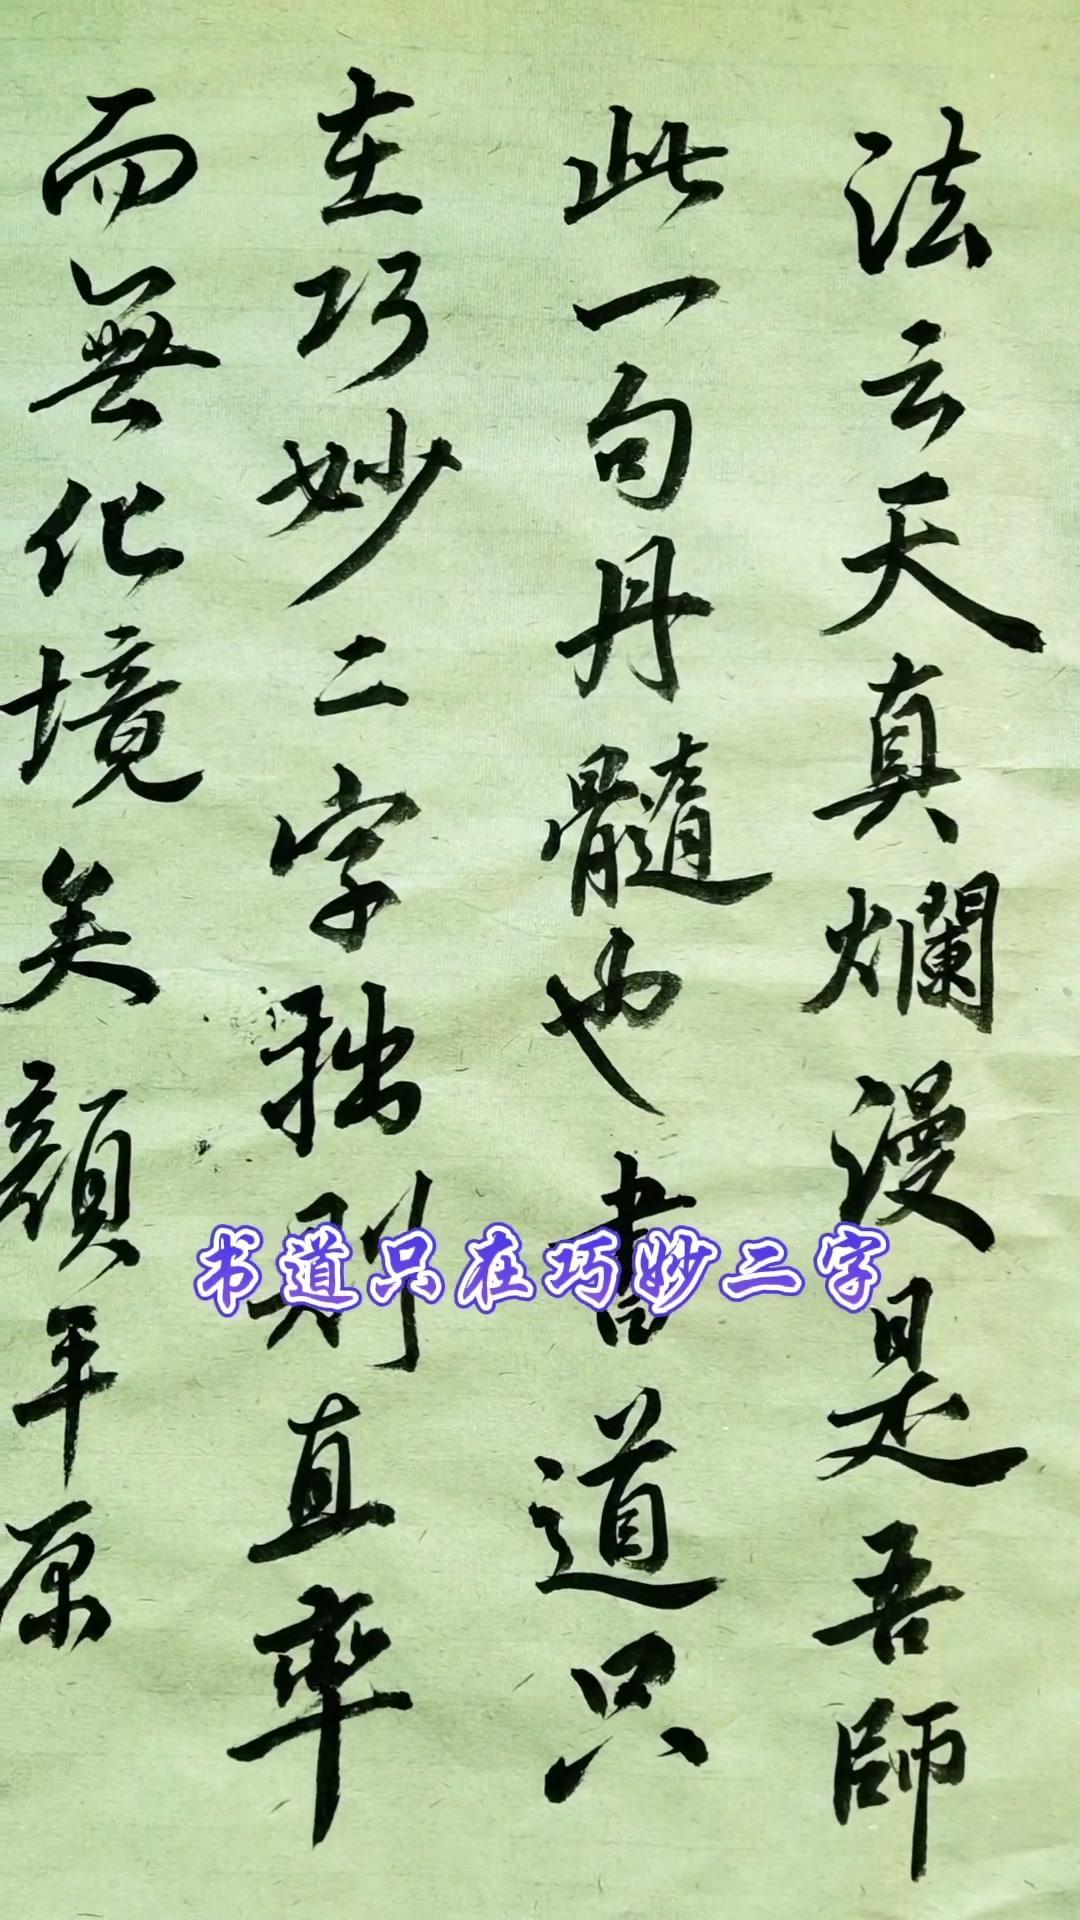 法云天真爛漫是吾師
此一句丹髓也書道只
在巧妙二字拙則直率
而無化境矣顏平原
书道只在巧妙二字